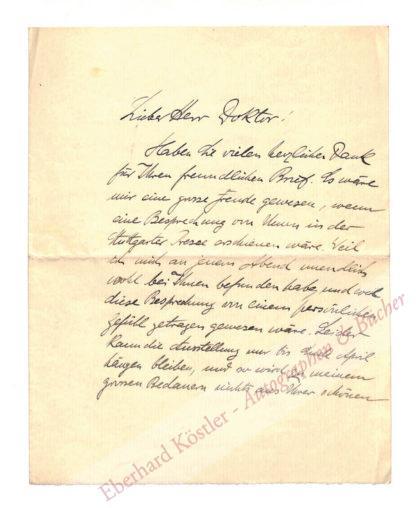 Lieber Herr Doktor!
Haben Sie vielen herzlichen Dank
für Ihren freundlichen Brief. Es wäre
mir eine grosse Freude gewesen, wenn
eine Besprechung von Ihnen in der
Stuttgarter Presse erschienen wäre. Weil
ich mich an jenem Abend unendlich
wohl bei Ihnen befunden habe, und weil
diese Besprechung von einem persönlichen
Gefühl getragen gewesen wäre. Leider
kann die Ausstellung nur bis Ende April
hängen bleiben, und so wird zu meinem
grossen Bedauern nichts aus Ihrer schönen
Eberhard Köstler - Autographen & Bücher